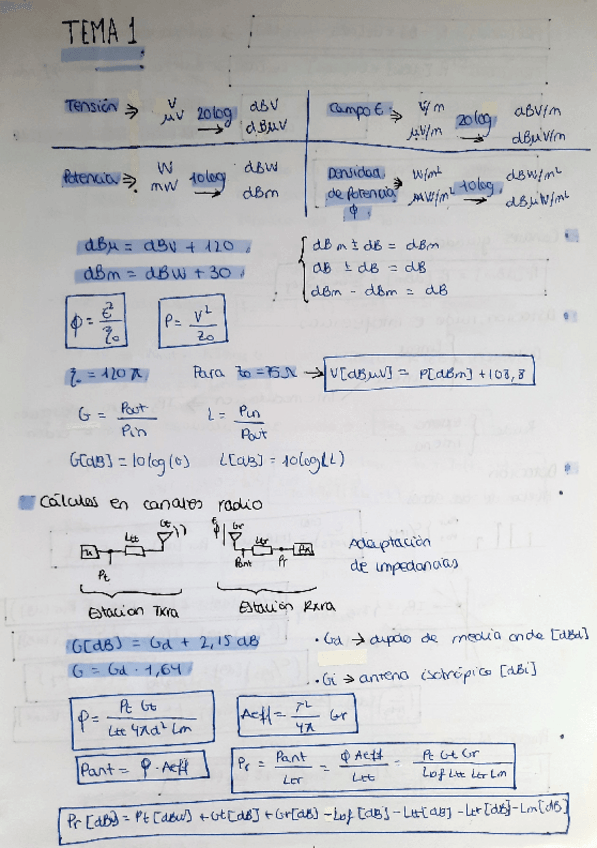 TEMA 1
Tensión → V 20log dBV
μV → dBμV
Campo E → V/m 20log dBV/m
μV/m → dBμV/m
Potencia → W 10log dBW
mW → dBm
Densidad de Potencia ϕ → W/m² 10log dBW/m²
μW/m² → dBμW/m²
dBμ = dBV + 120
dBm = dBW + 30
dBm ± dB = dBm
dB ± dB = dB
dBm - dBm = dB
ϕ = E²/η₀
P = V²/Z₀
η₀ = 120π Para Z₀ = 75Ω → V[dBμV] = P[dBm] + 108,8
G = Pout/Pin L = Pin/Pout
G[dB] = 10log(G) L[dB] = 10log(L)
Cálculos en canales radio
Ltt Gt ϕ Gr Ltr
Pt Pant Pr
Adaptación
de impedancias
Estación Txra Estación Rxra
G[dB] = Gd + 2,15 dB
G = Gd · 1,64
· Gd → dipolo de media onda [dBd]
· Gi → antena isotrópica [dBi]
ϕ = Pt Gt / Ltt 4πd² Lm
Aeff = λ²/4π Gr
Pant = ϕ · Aeff
Pr = Pant/Ltr = ϕ Aeff/Ltt = Pt Gt Gr / Lbf Ltt Ltr Lm
Pr [dBW] = Pt [dBW] + Gt[dB] + Gr[dB] - Lbf [dB] - Ltt[dB] - Ltr [dB] - Lm[dB]